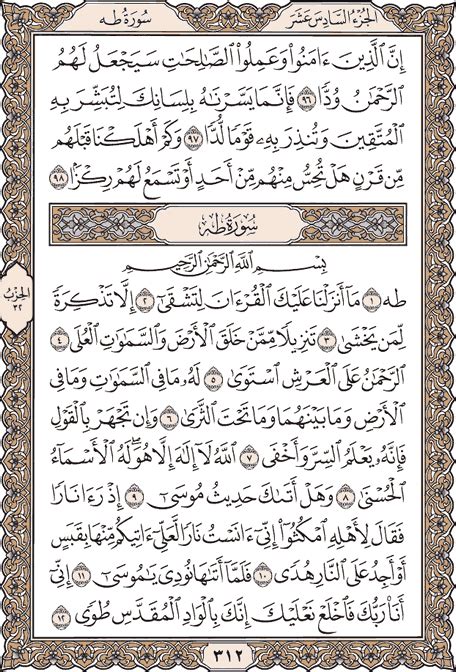 الجزء السادس عشر
سورة طه
إِنَّ ٱلَّذِينَ ءَامَنُوا۟ وَعَمِلُوا۟ ٱلصَّٰلِحَٰتِ سَيَجْعَلُ لَهُمُ
ٱلرَّحْمَٰنُ وُدًّا ٩٦ فَإِنَّمَا يَسَّرْنَٰهُ بِلِسَانِكَ لِتُبَشِّرَ بِهِ
ٱلْمُتَّقِينَ وَتُنذِرَ بِهِۦ قَوْمًا لُّدًّا ٩٧ وَكَمْ أَهْلَكْنَا قَبْلَهُم
مِّن قَرْنٍ هَلْ تُحِسُّ مِنْهُم مِّنْ أَحَدٍ أَوْ تَسْمَعُ لَهُمْ رِكْزًۢا ٩٨
سورة طه
بِسْمِ ٱللَّهِ ٱلرَّحْمَٰنِ ٱلرَّحِيمِ
طه ١ مَآ أَنزَلْنَا عَلَيْكَ ٱلْقُرْءَانَ لِتَشْقَىٰٓ ٢ إِلَّا تَذْكِرَةً
لِّمَن يَخْشَىٰ ٣ تَنزِيلًا مِّمَّنْ خَلَقَ ٱلْأَرْضَ وَٱلسَّمَٰوَٰتِ ٱلْعُلَى ٤
ٱلرَّحْمَٰنُ عَلَى ٱلْعَرْشِ ٱسْتَوَىٰ ٥ لَهُۥ مَا فِى ٱلسَّمَٰوَٰتِ وَمَا فِى
ٱلْأَرْضِ وَمَا بَيْنَهُمَا وَمَا تَحْتَ ٱلثَّرَىٰ ٦ وَإِن تَجْهَرْ بِٱلْقَوْلِ
فَإِنَّهُۥ يَعْلَمُ ٱلسِّرَّ وَأَخْفَى ٧ ٱللَّهُ لَآ إِلَٰهَ إِلَّا هُوَ لَهُ ٱلْأَسْمَآءُ
ٱلْحُسْنَىٰ ٨ وَهَلْ أَتَىٰكَ حَدِيثُ مُوسَىٰٓ ٩ إِذْ رَءَا نَارًا
فَقَالَ لِأَهْلِهِ ٱمْكُثُوٓا۟ إِنِّىٓ ءَانَسْتُ نَارًا لَّعَلِّىٓ ءَاتِيكُم مِّنْهَا بِقَبَسٍ
أَوْ أَجِدُ عَلَى ٱلنَّارِ هُدًى ١٠ فَلَمَّآ أَتَىٰهَا نُودِىَ يَٰمُوسَىٰٓ ١١ إِنِّىٓ
أَنَا۠ رَبُّكَ فَٱخْلَعْ نَعْلَيْكَ إِنَّكَ بِٱلْوَادِ ٱلْمُقَدَّسِ طُوًى ١٢
الحزب
٣٢
٣١٢